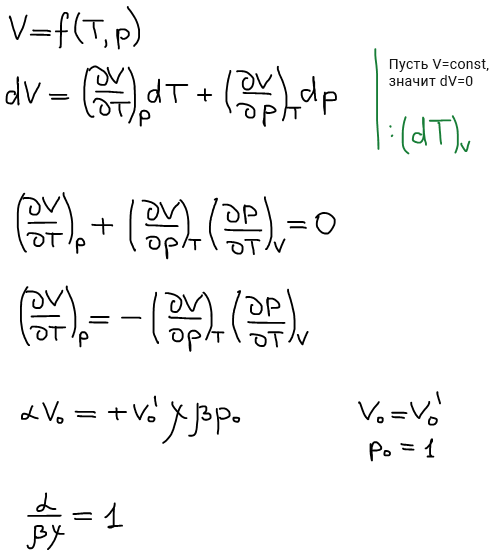 V=f(T,p)
dV = (∂V/∂T)_p dT + (∂V/∂p)_T dp
Пусть V=const,
значит dV=0
:(dT)_V
(∂V/∂T)_p + (∂V/∂p)_T (∂P/∂T)_V = 0
(∂V/∂T)_p = - (∂V/∂p)_T (∂P/∂T)_V
αV₀ = +V₀' χ β p₀
V₀ = V₀'
p₀ = 1
α/βχ = 1